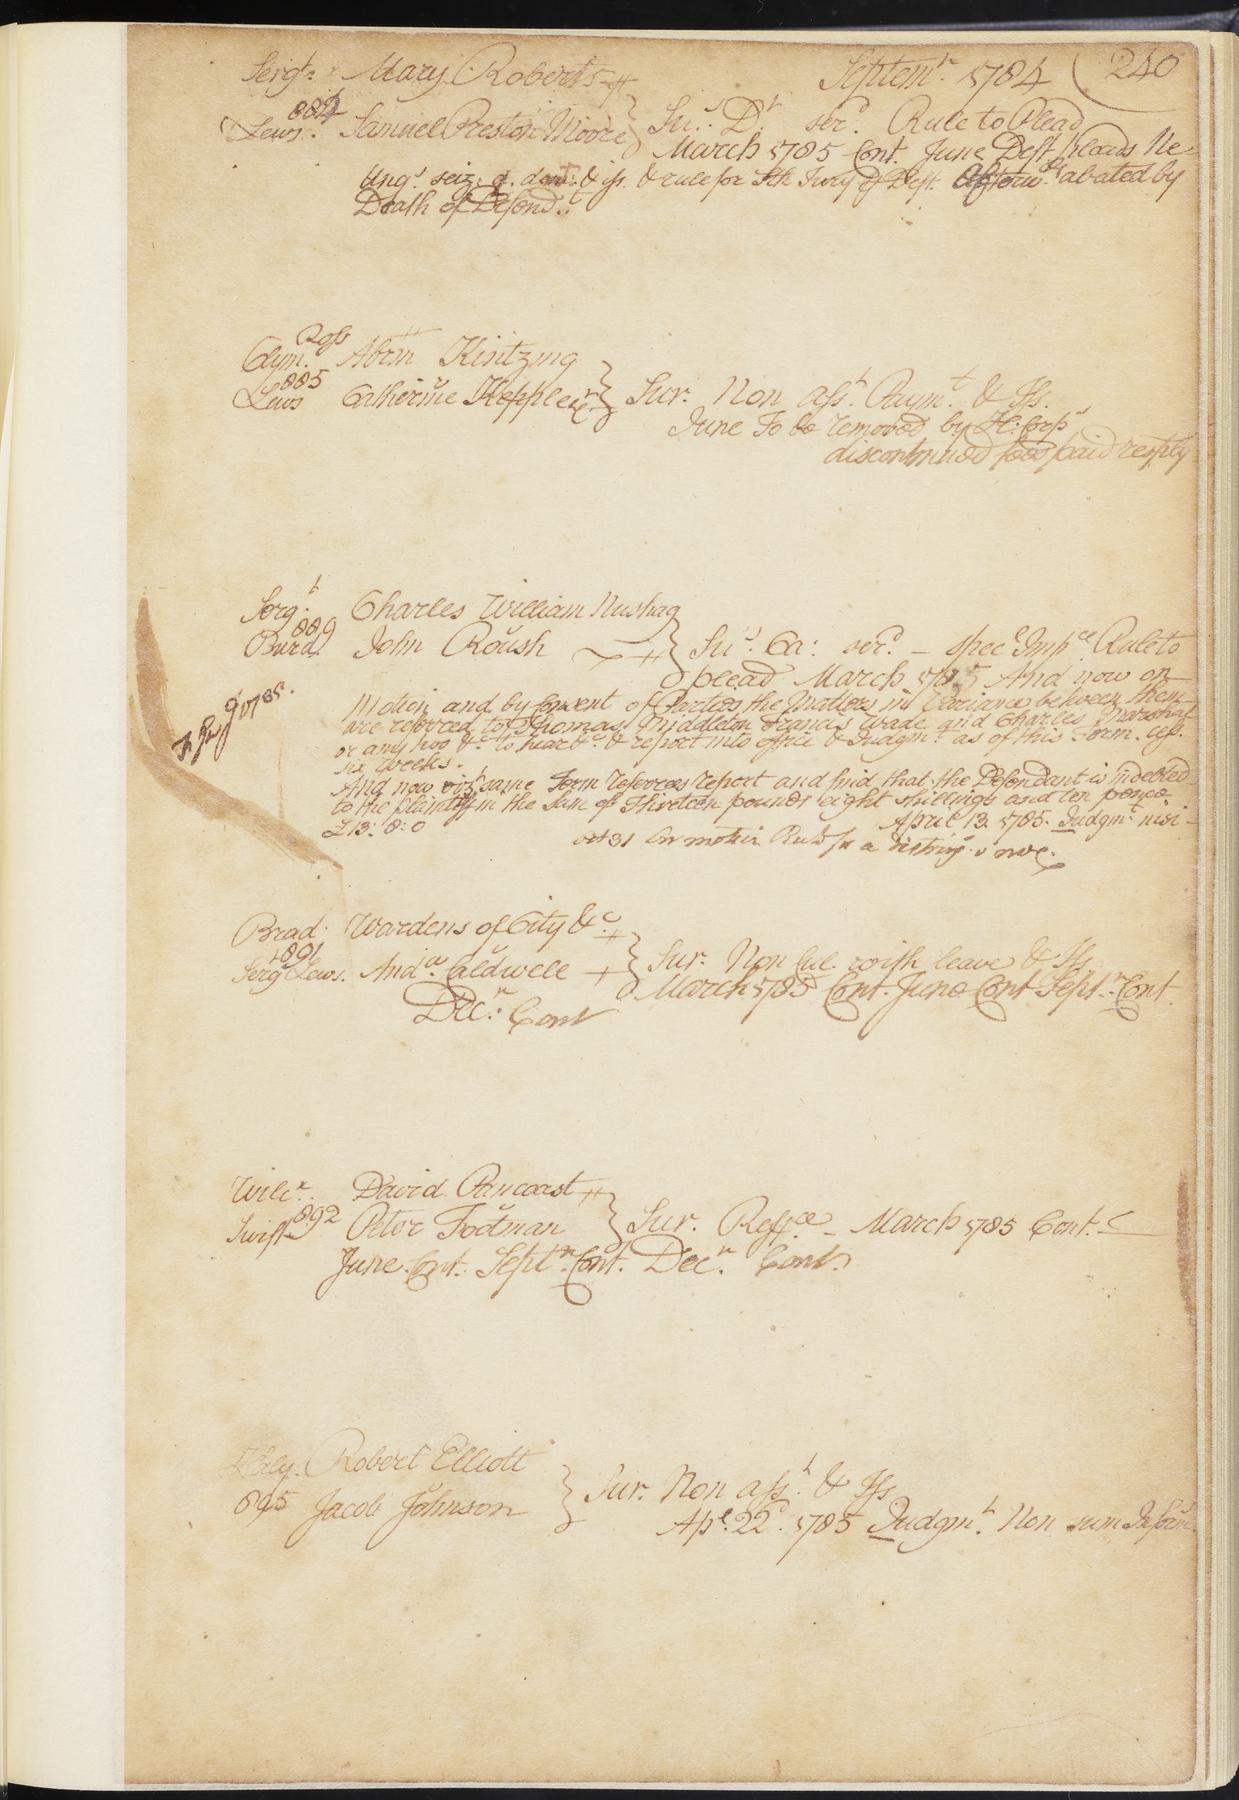 Sergt. Mary Roberts Septemr. 1784 240
884
Lews. Samuel Preston Moore Sus. Dt. serd. Rule to Plead
March 1785 Cont. June Deft. pleads Ne
Unqs. seiz. q. devt. & iss. & rule for Sth Jury Deft. Afterwds abated by
Death of Defendt.
Ross
Clym. Abrm Kintzing
885
Lews Catherine Keppele Sur. Non asst. Paymt. & Iss.
June To be removed by H: Corps
discontinued fees paid resptly
Sergt. Charles William Nushag
889
Burd. John Roush Sus. Ca: serd. – specl Impce Rule to
plead March 1785 And now on
Motion and by Consent of Parties the Matters in Variance between them
are referred to Thomas Middleton Francis Wade and Charles Marshal
or any two &c. to hear &c. & report into office & Judgmt. as of this Term.
six weeks.
And now vizt. same Term referees report and find that the Defendant is indebted
to the plaintiff in the Sum of Thirteen pounds eight shillings and ten pence
£13: 8: 0 April 13. 1785. Judgmt. nisi
oct 31 on motion Rule for a
Brad. Wardens of City &c.
891
Sergt Lews. Andw. Caldwell Sur. Non Cul. with leave & Iss
March 1785 Cont. June Cont Septr. Cont
Decr. Cont
Wilcx. David Pancoast
892
Swift Peter Footman Sur. Reffce – March 1785 Cont.
June. Cont. Septr. Cont. Decr. Cont.
Robert Elliott
895 Jacob Johnson Sur. Non asst. & Iss
Apl. 22d. 1785 Judgmt. Non sum Inform